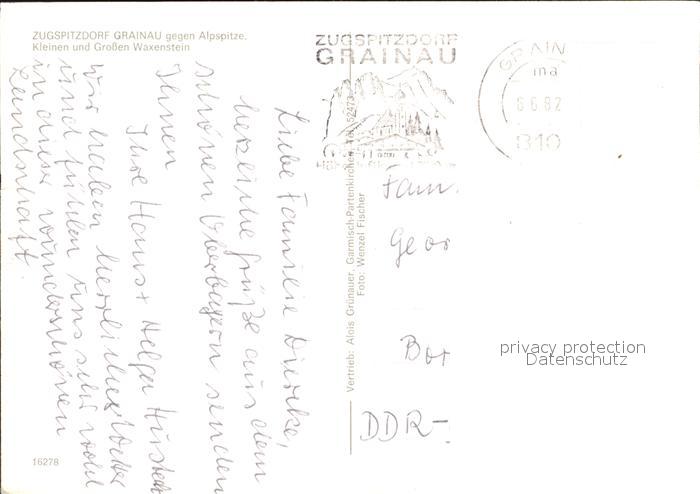 ZUGSPITZDORF GRAINAU gegen Alpspitze,
Kleinen und Großen Waxenstein
Liebe Familie Diercke,
herzliche Grüße aus dem
schönen Oberbayern senden
Ihnen
Ihre Hans + Helga
Wir haben herrliches Wetter
und fühlen uns sehr wohl
in dieser wunderschönen
Landschaft.
16278
Vertrieb: Alois Grünauer, Garmisch-Partenkirchen
Foto: Wenzel Fischer
ZUGSPITZDORF
GRAINAU
GRAIN
ma
6.6.82
810
Fam.
Geor
Bor
DDR-
privacy protection
Datenschutz